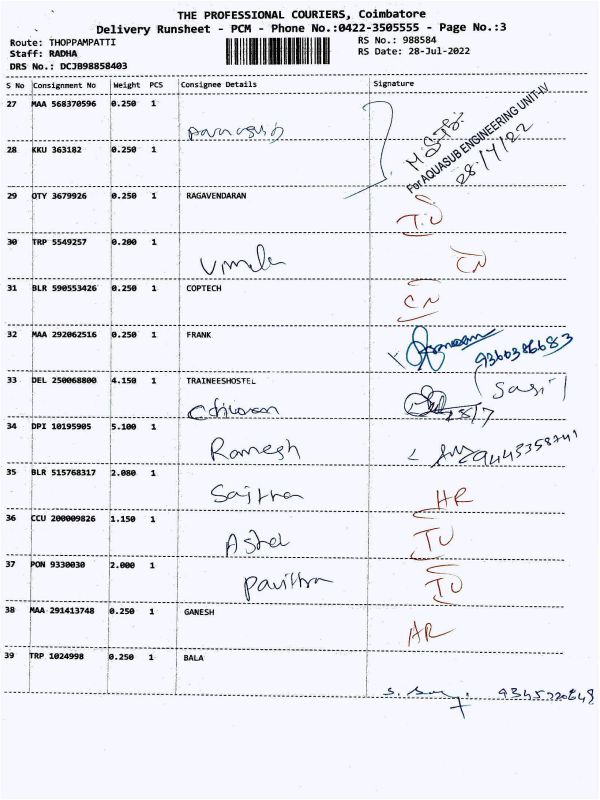 THE PROFESSIONAL COURIERS, Coimbatore
Delivery Runsheet - PCM - Phone No.:0422-3505555 - Page No.:3
Route: THOPPAMPATTI RS No.: 988584
Staff: RADHA RS Date: 28-Jul-2022
DRS No.: DCJB98858403
S No Consignment No Weight PCS Consignee Details Signature
27 MAA 568370596 0.250 1
For AQUASUB ENGINEERING UNIT-IV
28/7/22
28 KKU 363182 0.250 1
29 OTY 3679926 0.250 1 RAGAVENDARAN
T.U
30 TRP 5549257 0.200 1
Vimala CN
31 BLR 590553426 0.250 1 COPTECH
CN
32 MAA 292062516 0.250 1 FRANK
9360386683
33 DEL 250068800 4.150 1 TRAINEESHOSTEL
28/7
34 DPI 10195905 5.100 1
Ramesh 9443358741
35 BLR 515768317 2.080 1
HR
36 CCU 200009826 1.150 1
TU
37 PON 9330030 2.000 1
Pavithra TU
38 MAA 291413748 0.250 1 GANESH
AR
39 TRP 1024998 0.250 1 BALA